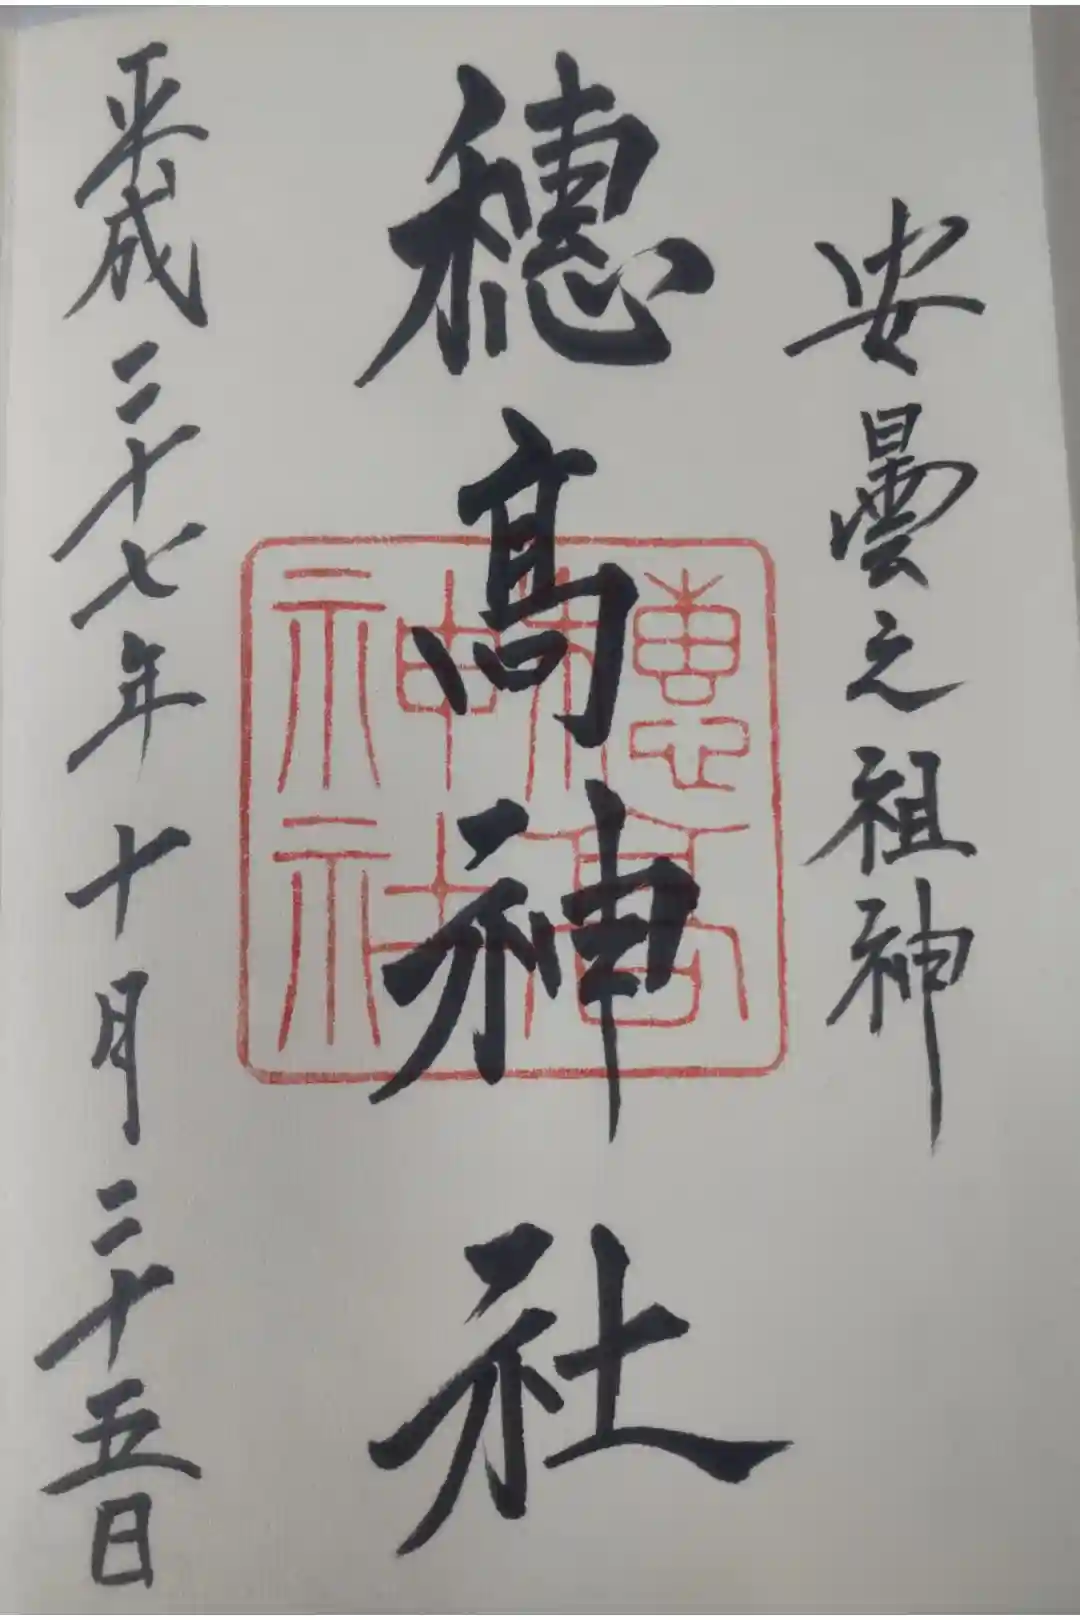 安曇之祖神
穂髙神社
穂髙神社
平成二十七年十月二十五日